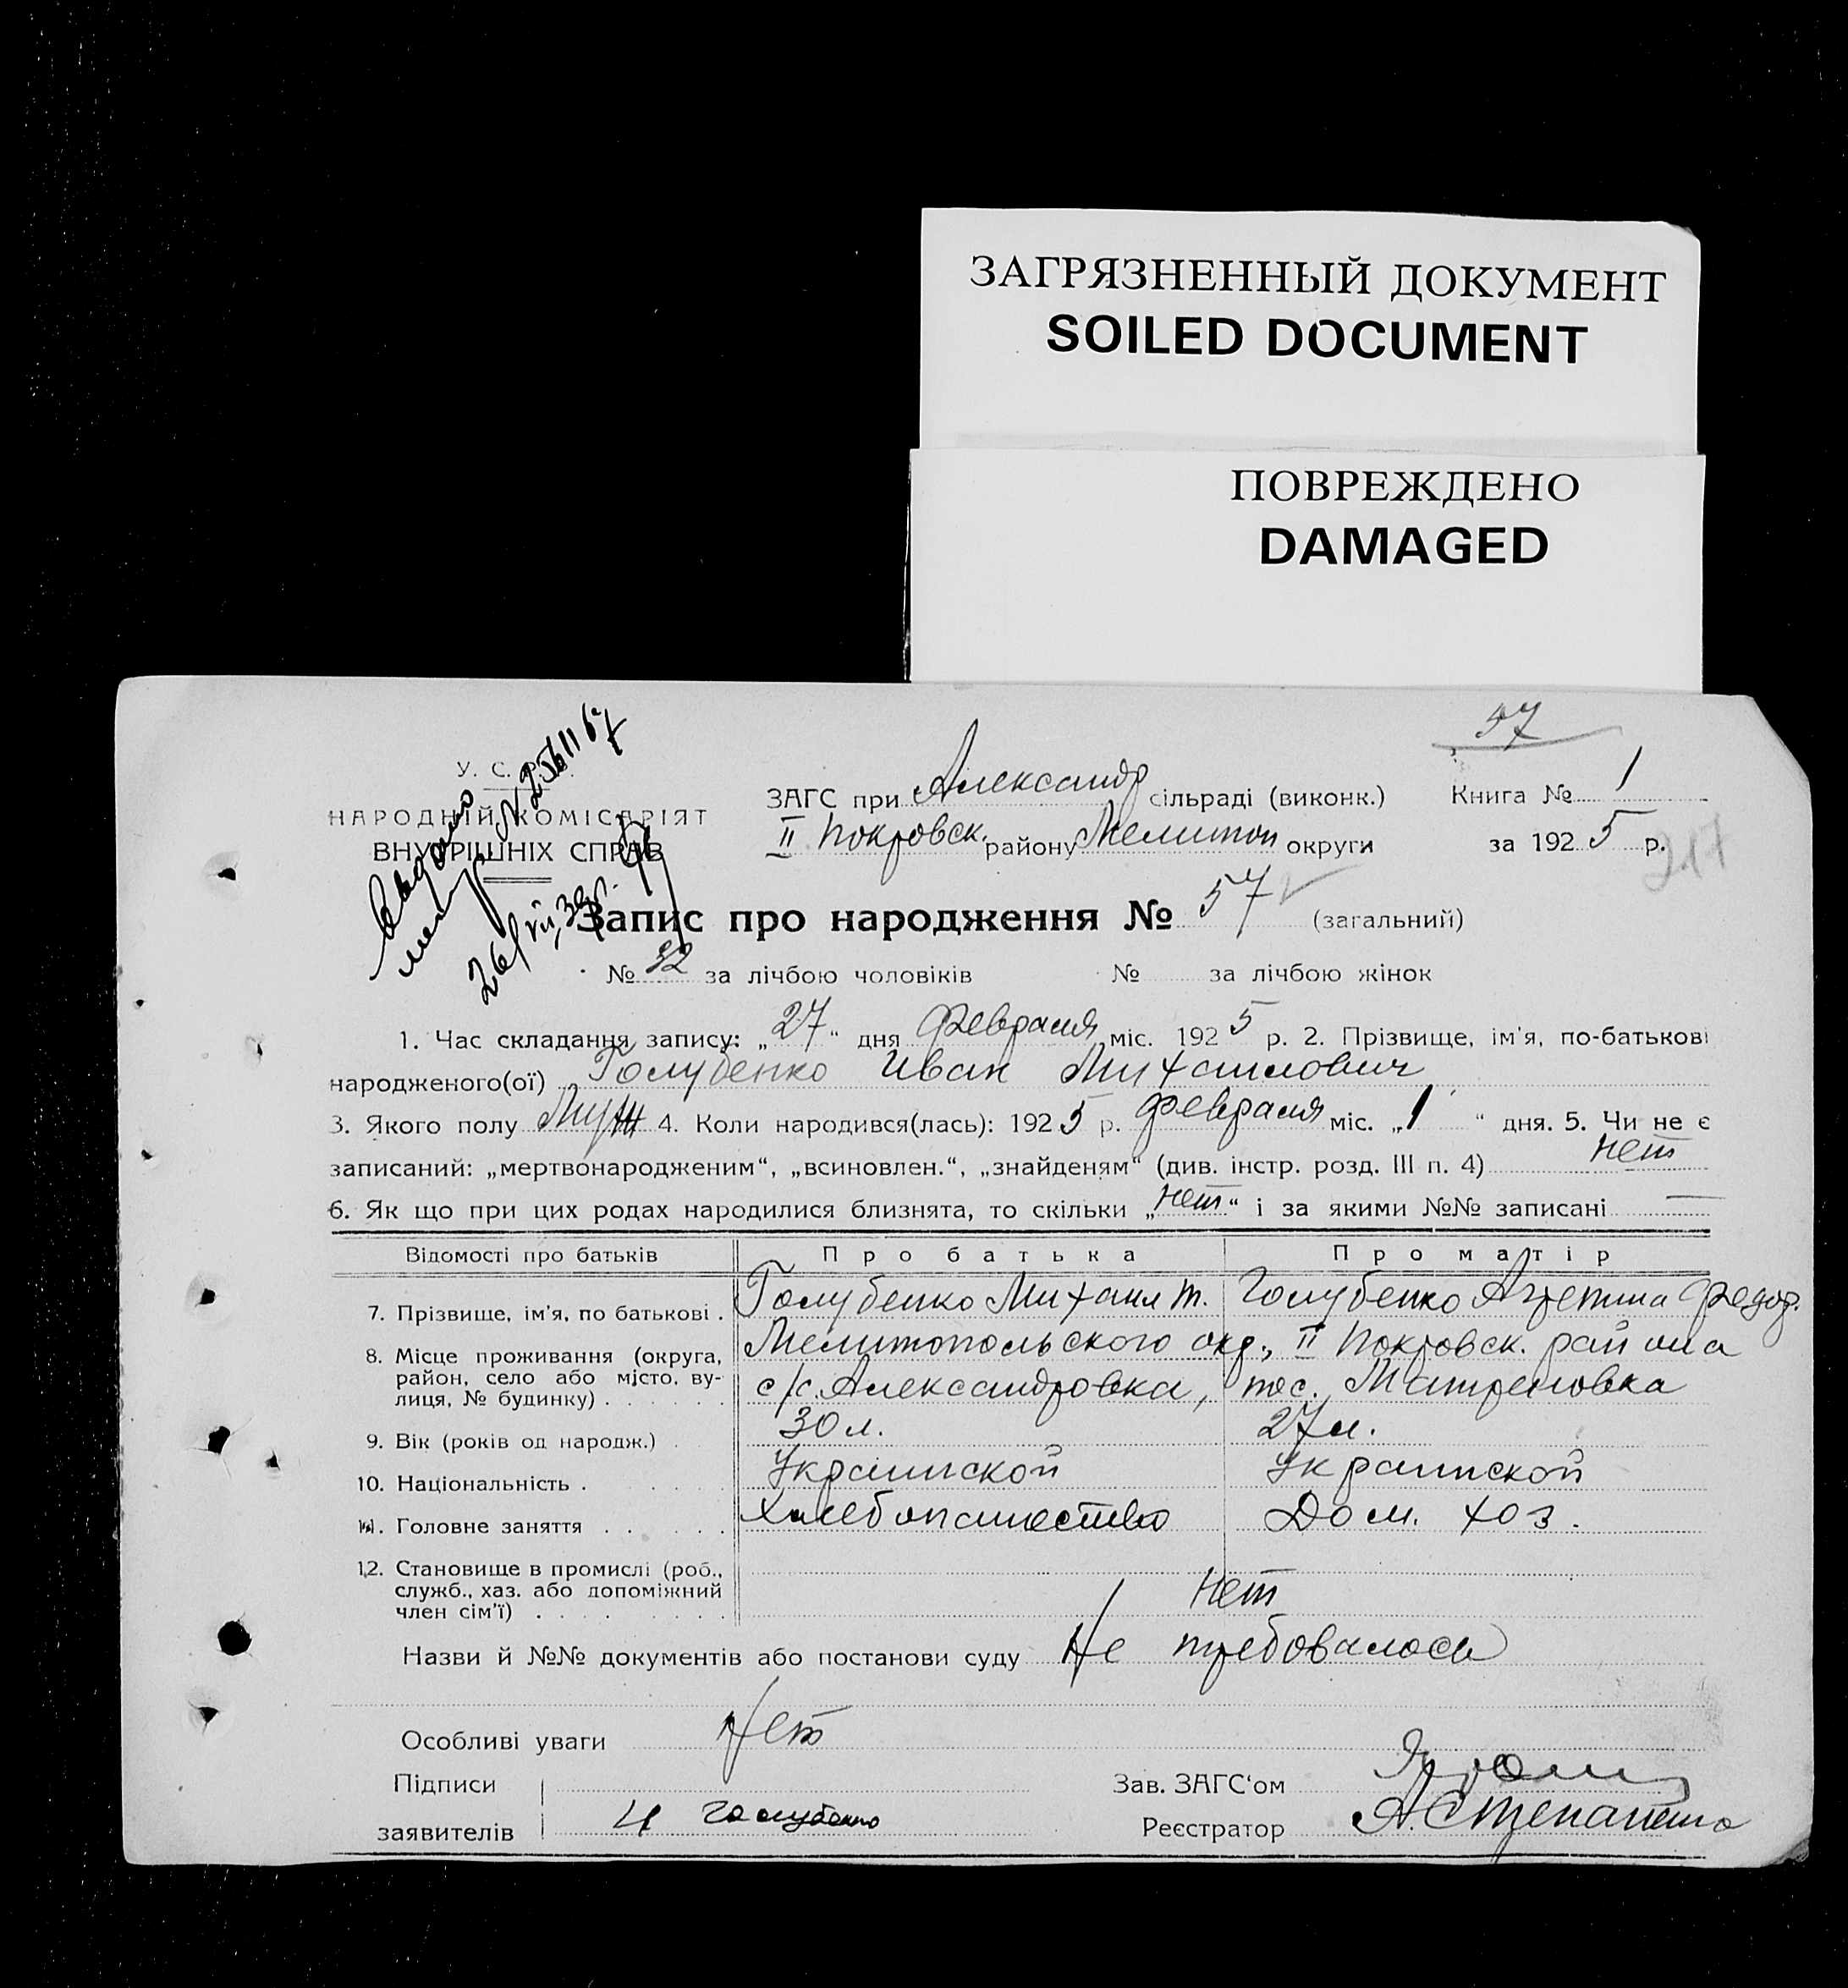 ЗАГРЯЗНЕННЫЙ ДОКУМЕНТ
SOILED DOCUMENT
ПОВРЕЖДЕНО
DAMAGED
57
У. С. Р. Р.
НАРОДНІЙ КОМІСАРІЯТ
ВНУТРІШНІХ СПРАВ
ЗАГС при Александр сільраді (виконк.) Книга № 1
II Покровск. району Мелитоп округи за 1925 р.
217
Запис про народження № 57 (загальний)
№ 32 за лічбою чоловіків № за лічбою жінок
1. Час складання запису: „27" дня Февраля міс. 1925 р. 2. Прізвище, ім'я, по-батькові
народженого(ої) Голубенко Иван Михаилович
3. Якого полу Муж 4. Коли народився(лась): 1925 р. Февраля міс. „1" дня. 5. Чи не є
записаний: „мертвонародженим", „всиновлен.", „знайденям" (див. інстр. розд. III п. 4) Нет
6. Як що при цих родах народилися близнята, то скільки „Нет" і за якими №№ записані —
Відомості про батьків Про батька Про матір
7. Прізвище, ім'я, по батькові . Голубенко Михаил Т. Голубенко Агрепина Федор.
8. Місце проживання (округа, район, село або місто, вулиця, № будинку) . Мелитопольского окр., II Покровск. района
с/с. Александровка, пос. Матреновка
9. Вік (років од народж.) . 30 л. 27 л.
10. Національність . Украинской Украинской
11. Головне заняття . Хлебопашество Дом. хоз.
12. Становище в промислі (роб., служб., хаз. або допоміжний член сім'ї) . Нет
Назви й №№ документів або постанови суду Не требовалось
Особливі уваги Нет
Підписи Зав. ЗАГС'ом
заявителів Голубенко Реєстратор А. Степаненко